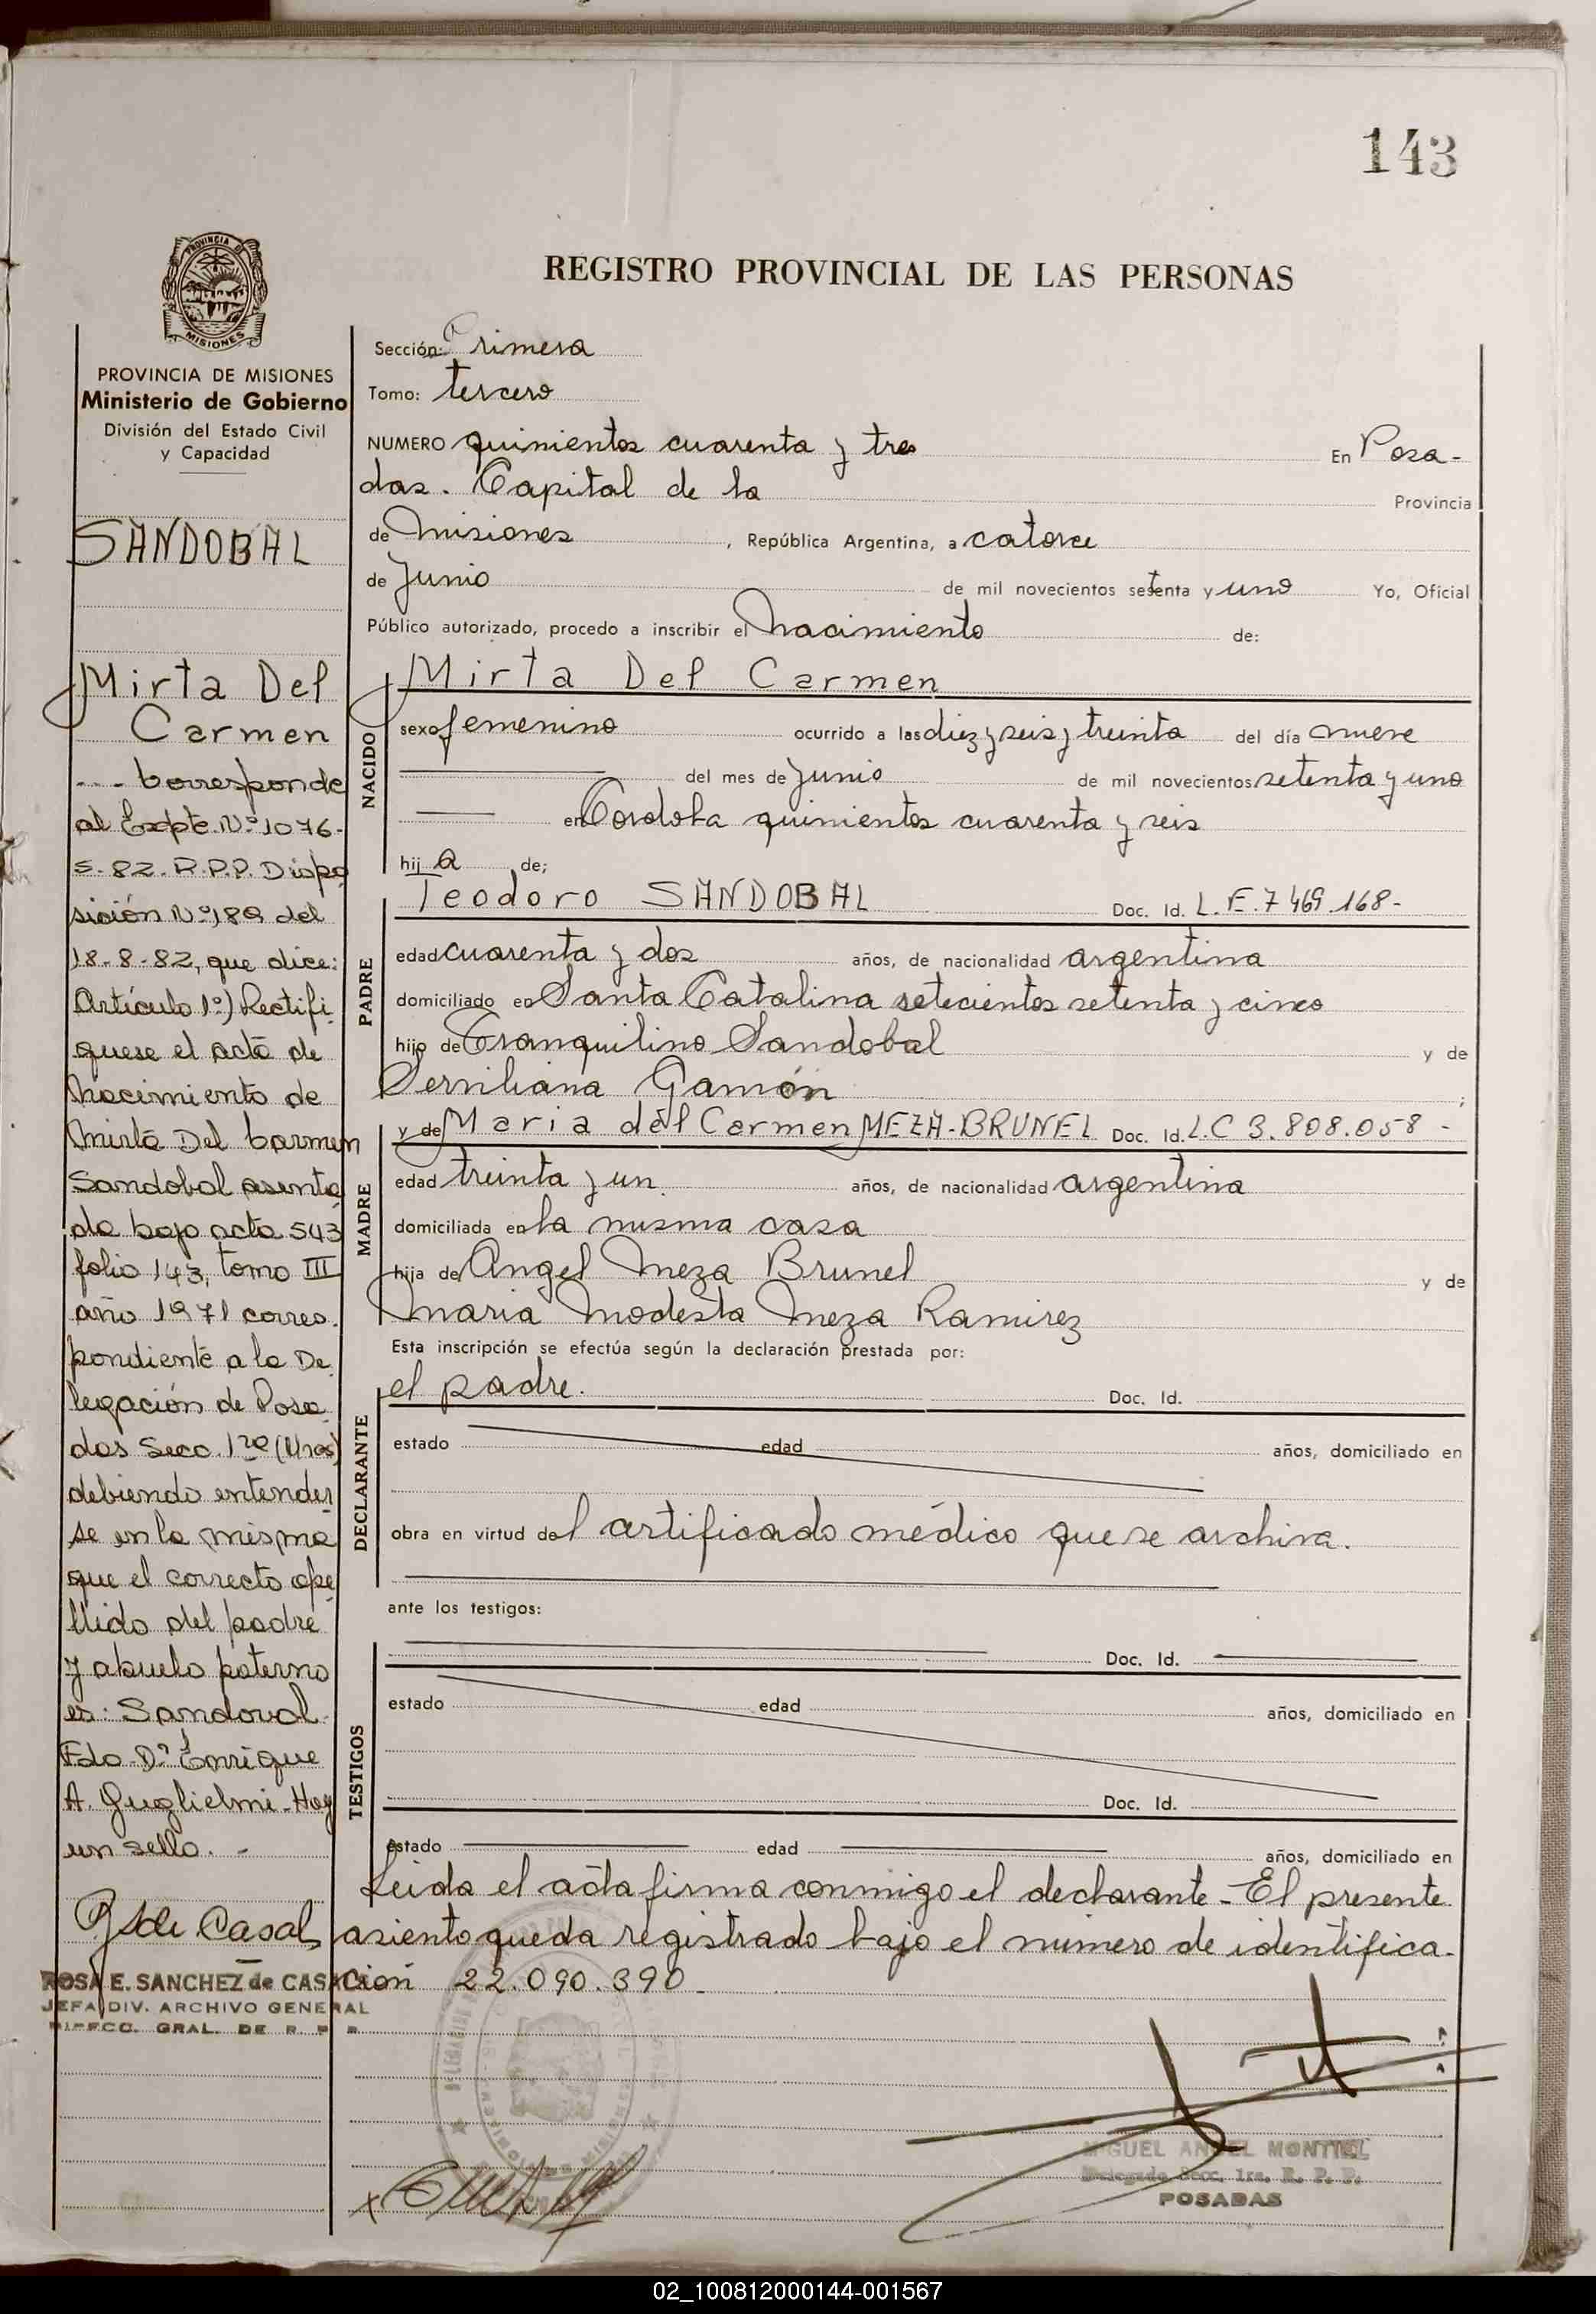 143
PROVINCIA DE
MISIONES
REGISTRO PROVINCIAL DE LAS PERSONAS
PROVINCIA DE MISIONES
Ministerio de Gobierno
División del Estado Civil
y Capacidad
SANDOBAL
Mirta Del
Carmen
--- Corresponde
al Expte. Nº 1076-
S-82-R.P.P. Dispo
sición Nº 189 del
18-8-82, que dice:
Artículo 1º) Rectifi
quese el acta de
nacimiento de
Mirta Del Carmen
Sandobal asenta
da bajo acta 543
folio 143, tomo III
año 1971 corres.
pondiente a la De
legación de Posa
das Secc. 1ra (Unos)
debiendo entender
se en la misma
que el correcto ape
llido del padre
y abuelo paterno
es: Sandoval
Fdo. Dº Enrique
A. Guglielmi - Hay
un sello. -
R S de Casal
ROSA E. SANCHEZ de CASAL
JEFA DIV. ARCHIVO GENERAL
DIRECC. GRAL. DE R. P. P.
Sección: Primera
Tomo: tercero
NUMERO quinientos cuarenta y tres En Posa-
das. Capital de la Provincia
de Misiones, República Argentina, a catorce
de Junio de mil novecientos setenta y uno Yo, Oficial
Público autorizado, procedo a inscribir el nacimiento de:
NACIDO
Mirta Del Carmen
sexo femenino ocurrido a las diez y seis y treinta del día nueve
del mes de Junio de mil novecientos setenta y uno
en Cordoba quinientos cuarenta y seis
hij a de;
PADRE
Teodoro SANDOBAL Doc. Id. L.E. 7 469.168-
edad cuarenta y dos años, de nacionalidad argentina
domiciliado en Santa Catalina setecientos setenta y cinco
hijo de Tranquilino Sandobal y de
Serviliana Gamón;
MADRE
y de Maria del Carmen MEZA-BRUNEL Doc. Id. L.C 3.808.058 -
edad treinta y un años, de nacionalidad argentina
domiciliada en la misma casa
hija de Angel Meza Brunel y de
Maria Modesta Meza Ramirez
Esta inscripción se efectúa según la declaración prestada por:
DECLARANTE
el padre. Doc. Id.
estado edad años, domiciliado en
obra en virtud del certificado médico que se archiva.
ante los testigos:
TESTIGOS
Doc. Id.
estado edad años, domiciliado en
Doc. Id.
estado edad años, domiciliado en
Leida el acta firma conmigo el declarante - El presente
asiento queda registrado bajo el número de identifica-
ción 22.090.390
MIGUEL ANGEL MONTIEL
Delegado Secc. 1ra. R. P. P.
POSADAS
02_100812000144-001567